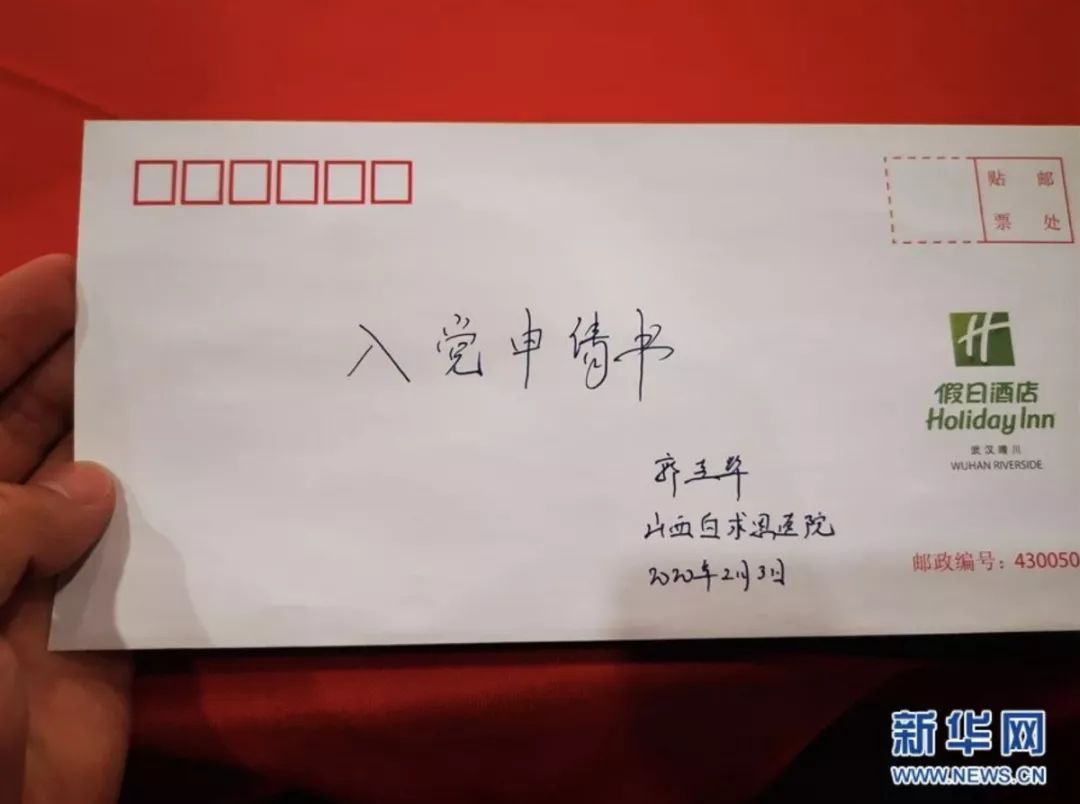 贴 邮
票 处
入党申请书
假日酒店
Holiday Inn
武汉晴川
WUHAN RIVERSIDE
山西白求恩医院
2020年2月3日
邮政编号：430050
新华网
WWW.NEWS.CN